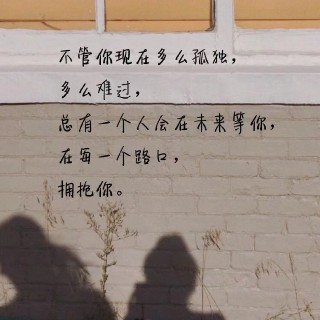 不管你现在多么孤独，
多么难过，
总有一个人会在未来等你，
在每一个路口，
拥抱你。